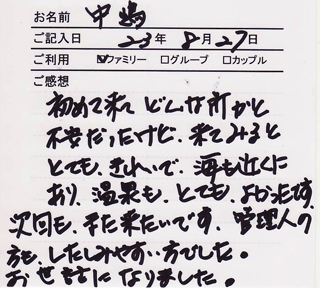 お名前 中嶋
ご記入日 23年 8月 27日
ご利用 ☑ファミリー □グループ □カップル
ご感想
初めて来て どんな所かと
不安だったけど、来てみると
とても、きれいで、海も近くに
あり、温泉も、とても、よかったです
次回も、また来たいです、管理人の
方も、したしみやすい方でした。
お世話になりました。